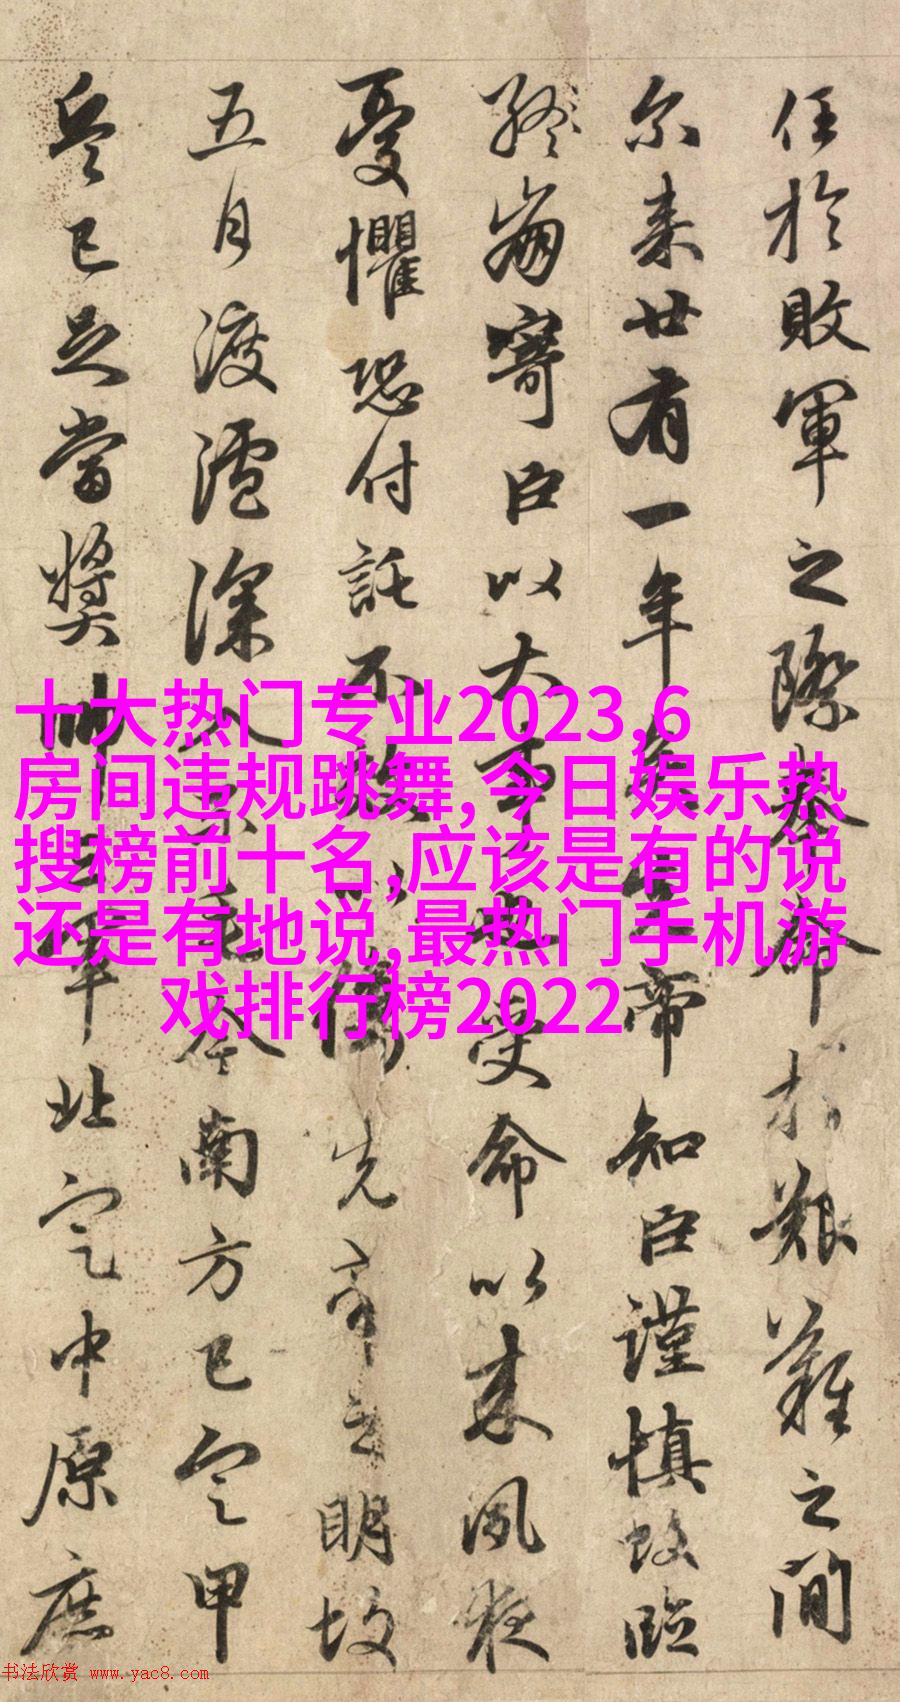 任於敗軍之際奉命於艱難之間
尔来廿有一年矣帝知臣謹慎故臨
終崩寄臣以大事也受命以来夙夜
憂懼恐付託不效以傷先帝之明故
五月渡瀘深入不毛今南方已定甲
兵已足當獎帥三軍北定中原庶
十大热门专业2023,6
房间违规跳舞,今日娱乐热
搜榜前十名,应该是有的说
还是有地说,最热门手机游
戏排行榜2022
书法欣赏 www.yac8.com